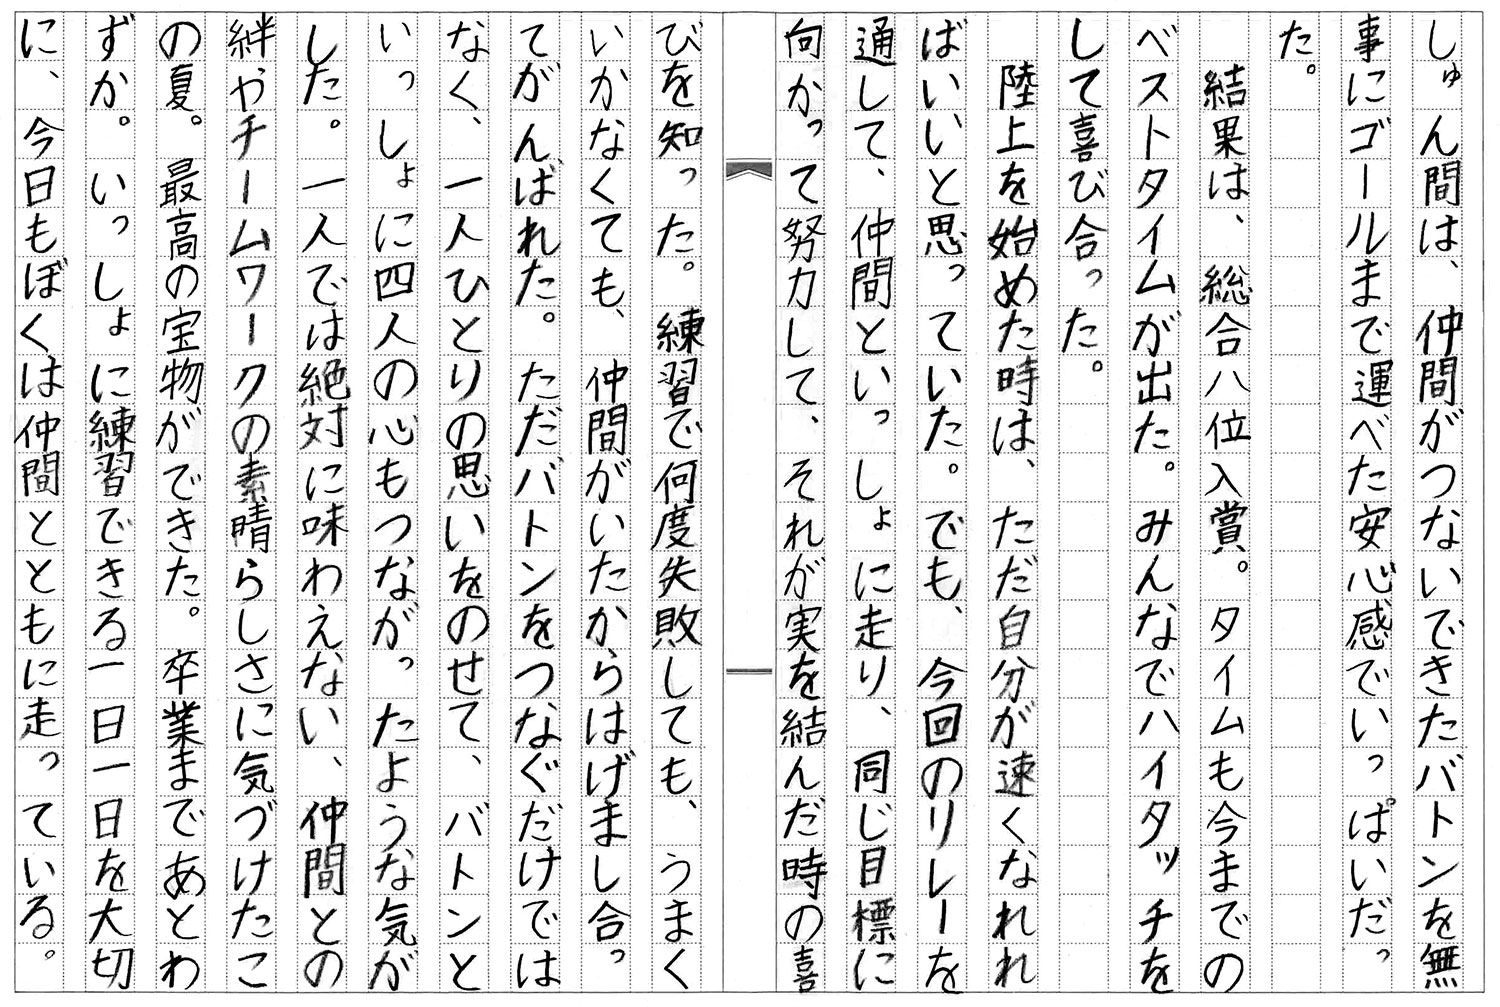 しゅん間は、仲間がつないできたバトンを無
事にゴールまで運べた安心感でいっぱいだっ
た。
結果は、総合八位入賞。タイムも今までの
ベストタイムが出た。みんなでハイタッチを
して喜び合った。
陸上を始めた時は、ただ自分が速くなれれ
ばいいと思っていた。でも、今回のリレーを
通して、仲間といっしょに走り、同じ目標に
向かって努力して、それが実を結んだ時の喜
びを知った。練習で何度失敗しても、うまく
いかなくても、仲間がいたからはげまし合っ
てがんばれた。ただバトンをつなぐだけでは
なく、一人ひとりの思いをのせて、バトンと
いっしょに四人の心もつながったような気が
した。一人では絶対に味わえない、仲間との
絆やチームワークの素晴らしさに気づけたこ
の夏。最高の宝物ができた。卒業まであとわ
ずか。いっしょに練習できる一日一日を大切
に、今日もぼくは仲間とともに走っている。